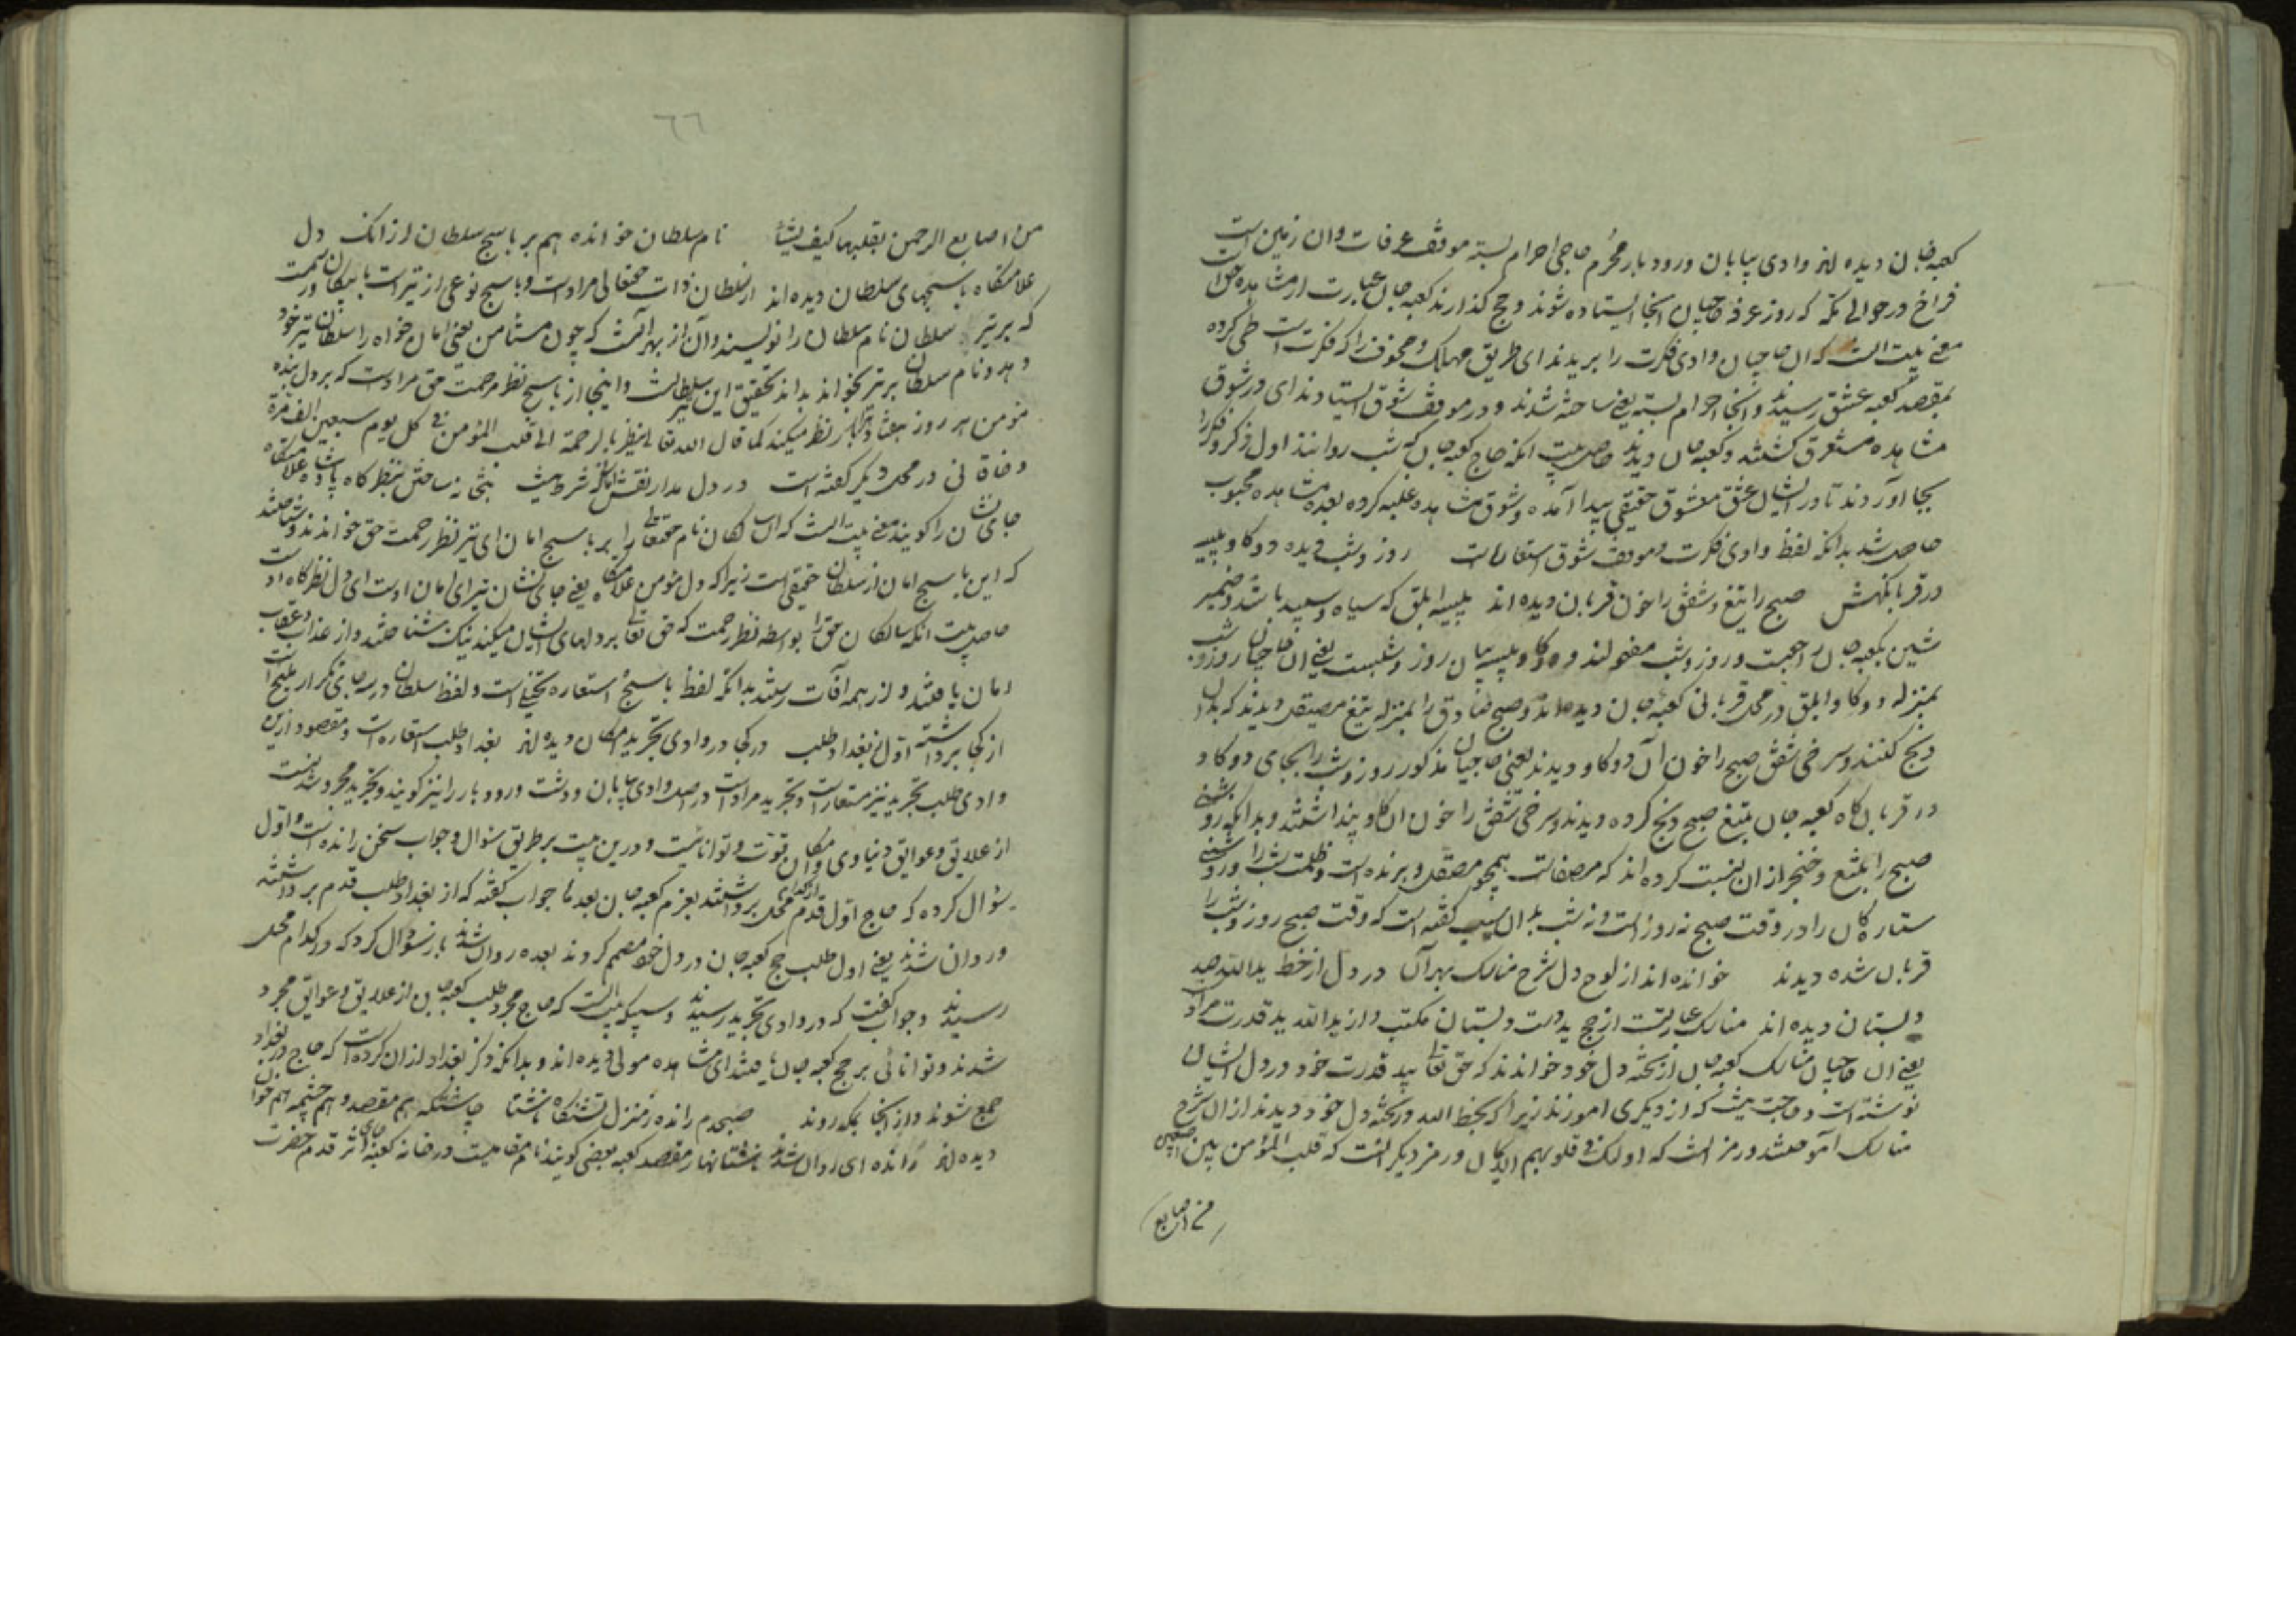 کعبه جان دیده اند وادی بیابان و رودبار محرم حاجی احرام بسته موقف عرفات و ان زمین است
فراخ در حوالی مکه که روز عرفه حاجیان انجا ایستاده شوند و حج گذارند کعبه جان عبارت از مشاهده حق است
معنی بیت انست که ان حاجیان وادی فکرت را بریدند ای طریق مهالک و مخوف را که فکرت است طی کرده
بمقصد کعبه عشق رسیدند و انجا احرام بسته یعنی ساخته شدند و در موقف شوق ایستادند ای در شوق
مشاهده مستغرق گشتند و کعبه جان دیدند حاصل بیت انکه حاج کعبه جان که شب روانند اول ذکر و فکر را
بجا آوردند تا در ایشان عشق معشوق حقیقی پیدا آمده و شوق مشاهده غلبه کرده بعده مشاهده محبوب
حاصل شد بدانکه لفظ وادی فکرت و موقف شوق استعارات است روز و شب دیده دو گاو پیسه
در قربانگهش صبح را تیغ و شفق را خون قربان دیده اند پیسه ابلق که سیاه و سپید باشد و ضمیر
شین بکعبه جان راجعست و روز و شب مفعولند و دو گاو پیسه بیان روز و شبست یعنی ان حاجیان روز و شب
بمنزله دو گاو ابلق در محل قربانی کعبه جان دیده اند و صبح صادق را بمنزله تیغ مصیقل دیدند که بدان
ذبح کنند و سرخی شفق صبح را خون آن دو گاو دیدند یعنی حاجیان مذکور روز و شب را بجای دو گاو
در قربان گاه کعبه جان بتیغ صبح ذبح کرده دیدند و سرخی شفق را خون ان گاو پنداشتند و بدانکه روشنی
صبح را بتیغ و خنجر از ان نسبت کرده اند که مصفاست همچو مصقل و برنده است و ظلمت شب را و روشنی
ستارگان را در وقت صبح نه روز است و نه شب بدان سبب گفته است که وقت صبح روز و شب را
قربان شده دیدند خوانده اند از لوح دل شرح مناسک بهر آن در دل از خط ید الله صد
دبستان دیده اند مناسک عبارتست از حج ید دست دبستان مکتب و از ید الله ید قدرت مراد
یعنی ان حاجیان مناسک کعبه جان از تخته دل خود خواندند که حق تعالی بید قدرت خود در دل ایشان
نوشته است و حاجت نیست که از دیگری اموزند زیرا که بخط الله در تخته دل خود دیدند از ان شرح
مناسک آموختند و رمز انست که اولئک فی قلوبهم الایمان و رمز دیگر انست که قلب المؤمن بین اصبعین
من اصابع
٦٦
من اصابع الرحمن یقلبها کیف یشاء نام سلطان خوانده هم بر یاسج سلطان از انک دل
علامتگاه یاسجهای سلطان دیده اند از سلطان ذات حقتعالی مراد است و یاسج نوعی از تیر است با پیکان و رسمست
که بر تیر سلطان نام سلطان را نویسند و آن از بهر آنست که چون مستامن یعنی امان خواه را سلطان تیر خود
دهد و نام سلطان بر تیر بخواند بداند تحقیق این تیر سلطانست و اینجا از یاسج نظر مرحمت حق مراد است که بر دل بنده
مومن هر روز هفتاد هزار نظر میکند کما قال الله تعالی ینظر بالرحمة الی قلب المؤمن فی کل یوم سبعین الف مرة
و خاقانی در محل دیگر گفته است در دل مدار نقش امانی که شرط نیست بتخانه ساختن بنظرگاه پادشاه و علامتگاه
جای نشان را گویند معنی بیت انست که ان سالکان نام حقتعالی را بر یاسج امان ای تیر نظر رحمت حق خواندند و شناختند
که این یاسج امان از سلطان حقیقی است زیرا که دل مومن علامتگاه یعنی جای نشان تیر ای امان اوست ای دل نظرگاه اوست
حاصل بیت انکه سالکان حق را بواسطه نظر رحمت که حق تعالی بر دلهای ایشان میکند نیک شناختند و از عذاب و عقاب
امان یافتند و از همه آفات رستند بدانکه لفظ یاسج استعاره تخییلی است و لفظ سلطان در سه جای تکرار ملیح است
از کجا برداشته اول ز بغداد طلب در کجا در وادی تجرید امکان دیده اند بغداد طلب استعاره است و مقصود ازین
وادی طلب تجرید نیز مستعار است و تجرید مراد است در اصل وادی بیابان و دشت و رودبار را نیز گویند و تجرید مجرد شدنست
از علایق و عوایق دنیاوی و امکان قوت و تواناییست و درین بیت بر طریق سوال و جواب سخن رانده است و اول
سؤال کرده که حاج اول قدم از کدام محل برداشتند بعزم کعبه جان بعده جواب گفته که از بغداد طلب قدم برداشته
و روان شدند یعنی اول طلب حج کعبه جان در دل خود مصمم کردند بعده روان شدند باز سؤال کرد که در کدام محل
رسیدند و جواب گفت که در وادی تجرید رسیدند و سبیکه بیت انست که حاج مجرد طلب کعبه جان از علایق و عوایق مجرد
شدند و توانائی بر حج کعبه جان یافتند ای مشاهده مولی دیده اند و بدانکه ذکر بغداد از ان کرده است که حاج در بغداد
جمع شوند و از انجا بمکه روند صبحدم رانده ز منزل تشنگان ناشتا چاشتگه هم مقصد و هم چشمه هم خوان
دیده اند رانده ای روان شدند ناشتا نهار مقصد کعبه بعضی گویند نام مقامیست در خانه کعبه جای اثر قدم حضرت